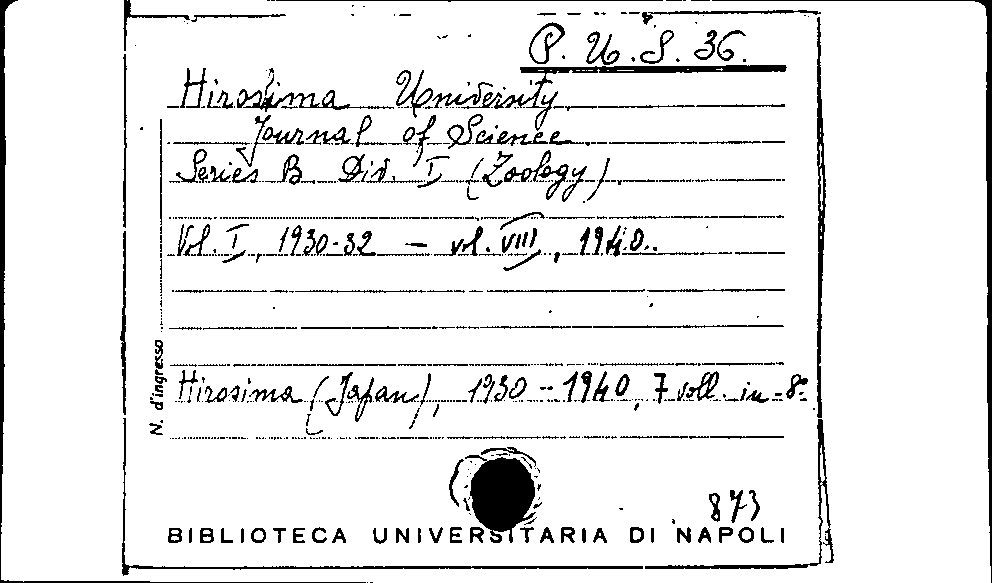 P. U. S. 36.
Hiroshima University
Journal of Science
Series B. Div. I (Zoology).
Vol. I, 1930-32 — vol. VIII, 1940..
N. d'ingresso
Hirosima (Japan), 1930 - 1940, 7 voll. in -8º
873
BIBLIOTECA UNIVERSITARIA DI NAPOLI